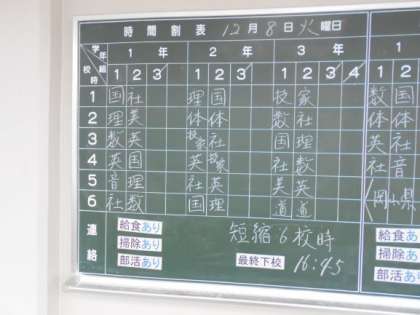 時間割表 12月8日火曜日
学年 組 1年 2年 3年 1
校時 1 2 3 1 2 3 1 2 3 4 1 2
1 国 社 理 国 技 家 数 国
2 理 英 体 体 数 社 体 体
3 数 英 技家 社 国 理 英 社
4 英 国 英 技家 社 数 社 音
5 音 理 社 英 美 英
6 社 数 国 理 道 道
連絡 給食あり 短縮6校時 給食あり
掃除あり 掃除あり
部活あり 最終下校 16:45 部活あり